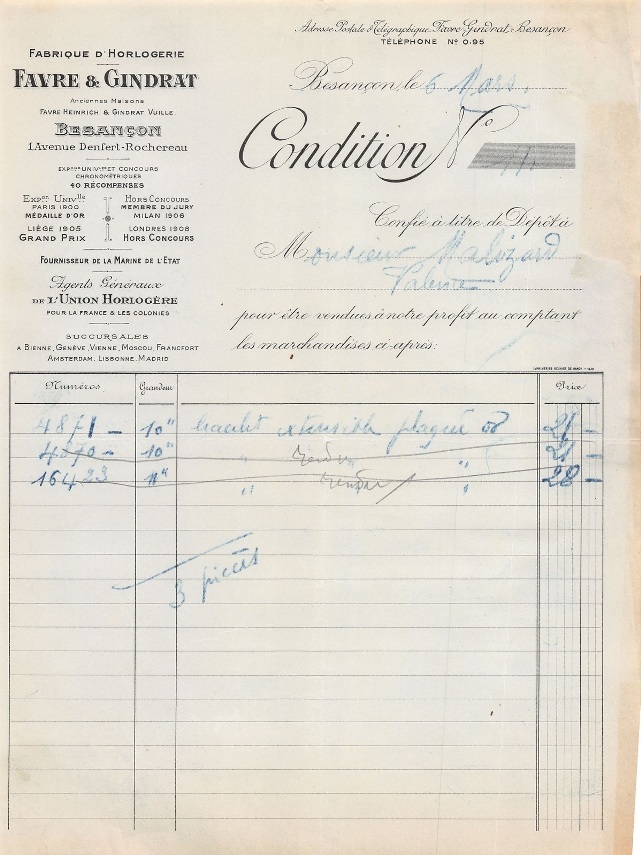 Adresse Postale & Télégraphique, Favre-Gindrat-Besançon
TÉLÉPHONE Nº 0.95
FABRIQUE D'HORLOGERIE
FAVRE & GINDRAT
Anciennes Maisons
FAVRE HEINRICH & GINDRAT VUILLE
BESANÇON
1 Avenue Denfert-Rochereau
EXP.ons UNIV.lles ET CONCOURS
CHRONOMÉTRIQUES
40 RÉCOMPENSES
EXP.on UNIV.lle
PARIS 1900
MÉDAILLE D'OR
LIÈGE 1905
GRAND PRIX
HORS CONCOURS
MEMBRE DU JURY
MILAN 1906
LONDRES 1908
HORS CONCOURS
FOURNISSEUR DE LA MARINE DE L'ETAT
Agents Généraux
DE L'UNION HORLOGÈRE
POUR LA FRANCE & LES COLONIES
SUCCURSALES
A BIENNE, GENÈVE, VIENNE, MOSCOU, FRANCFORT
AMSTERDAM, LISBONNE, MADRID
Besançon, le 6 Mars.
Condition Nº
Confié à titre de Dépôt à
Monsieur
Valence
pour être vendues à notre profit au comptant
les marchandises ci-après:
Numéros Grandeur Prix
4871 - 10" extensible plaqué or 21 -
4870 - 10" " rendu " 21 -
16423 11" " rendu " 28 -
3 pièces